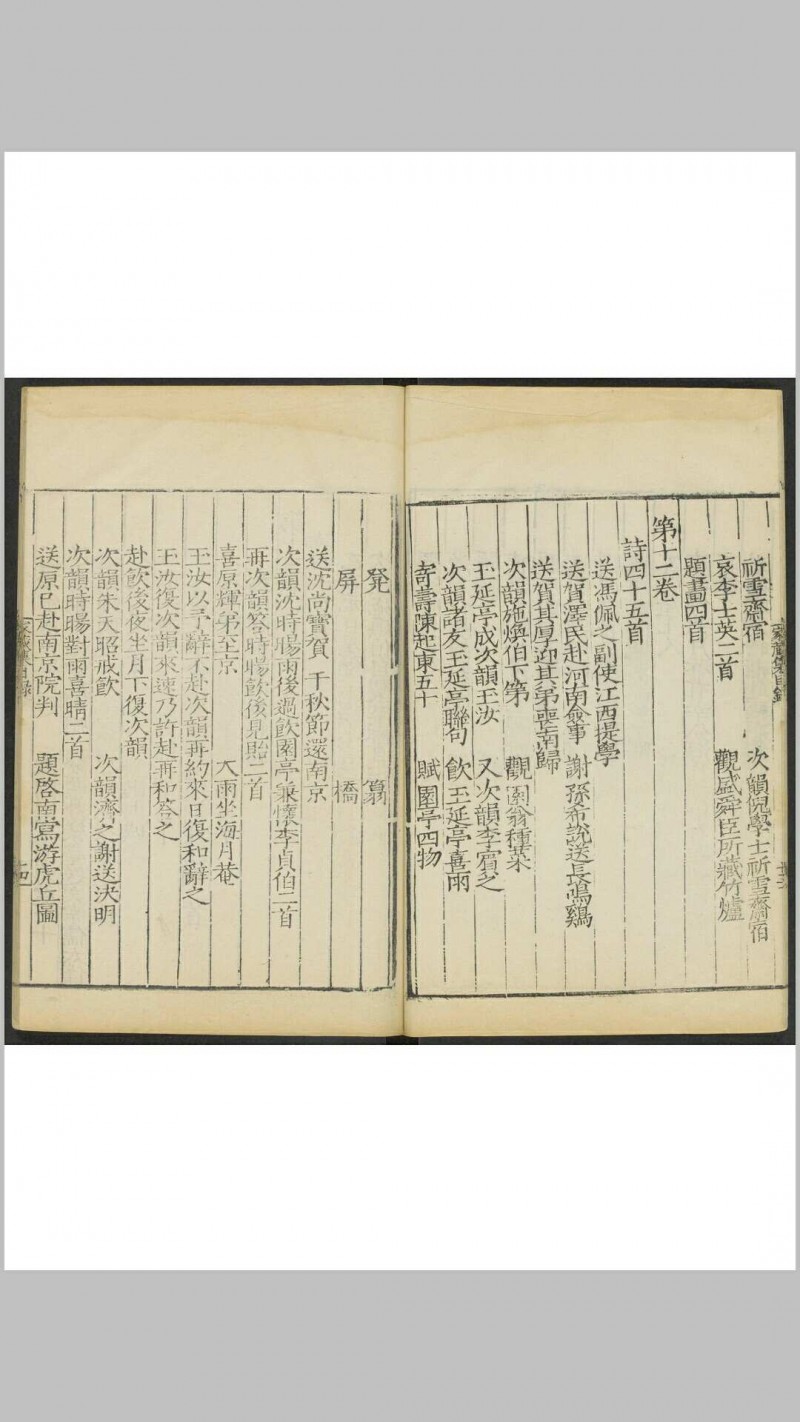 祈雪齋宿　次韻倪學士祈雪齋宿
哀李士英二首　觀盛舜臣所藏竹爐
題畫四首
第十二卷
詩四十五首
送馮佩之副使江西提學
送賀澤民赴河南僉事　謝孫希說送長鳴鷄
送賀其厚迎其弟喪南歸
次韻施煥伯下第　觀園翁種菜
玉延亭成次韻玉汝　又次韻李賓之
次韻諸友玉延亭聯句　飲玉延亭喜雨
寄壽陳起東五十　賦園亭四物
凳　篘
屏　橋
送沈尚寶賀千秋節還南京
次韻沈時暘雨後過飲園亭兼懷李貞伯二首
再次韻答時暘飲後見貽二首
喜原輝弟至京　大雨坐海月菴
玉汝以予辭不赴次韻再約來日復和辭之
玉汝復次韻來速乃許赴再和答之
赴飲後夜坐月下復次韻
次韻朱天昭戒飲　次韻濟之謝送決明
次韻時暘對雨喜晴二首
送原巳赴南京院判　題啓南寫游虎丘圖